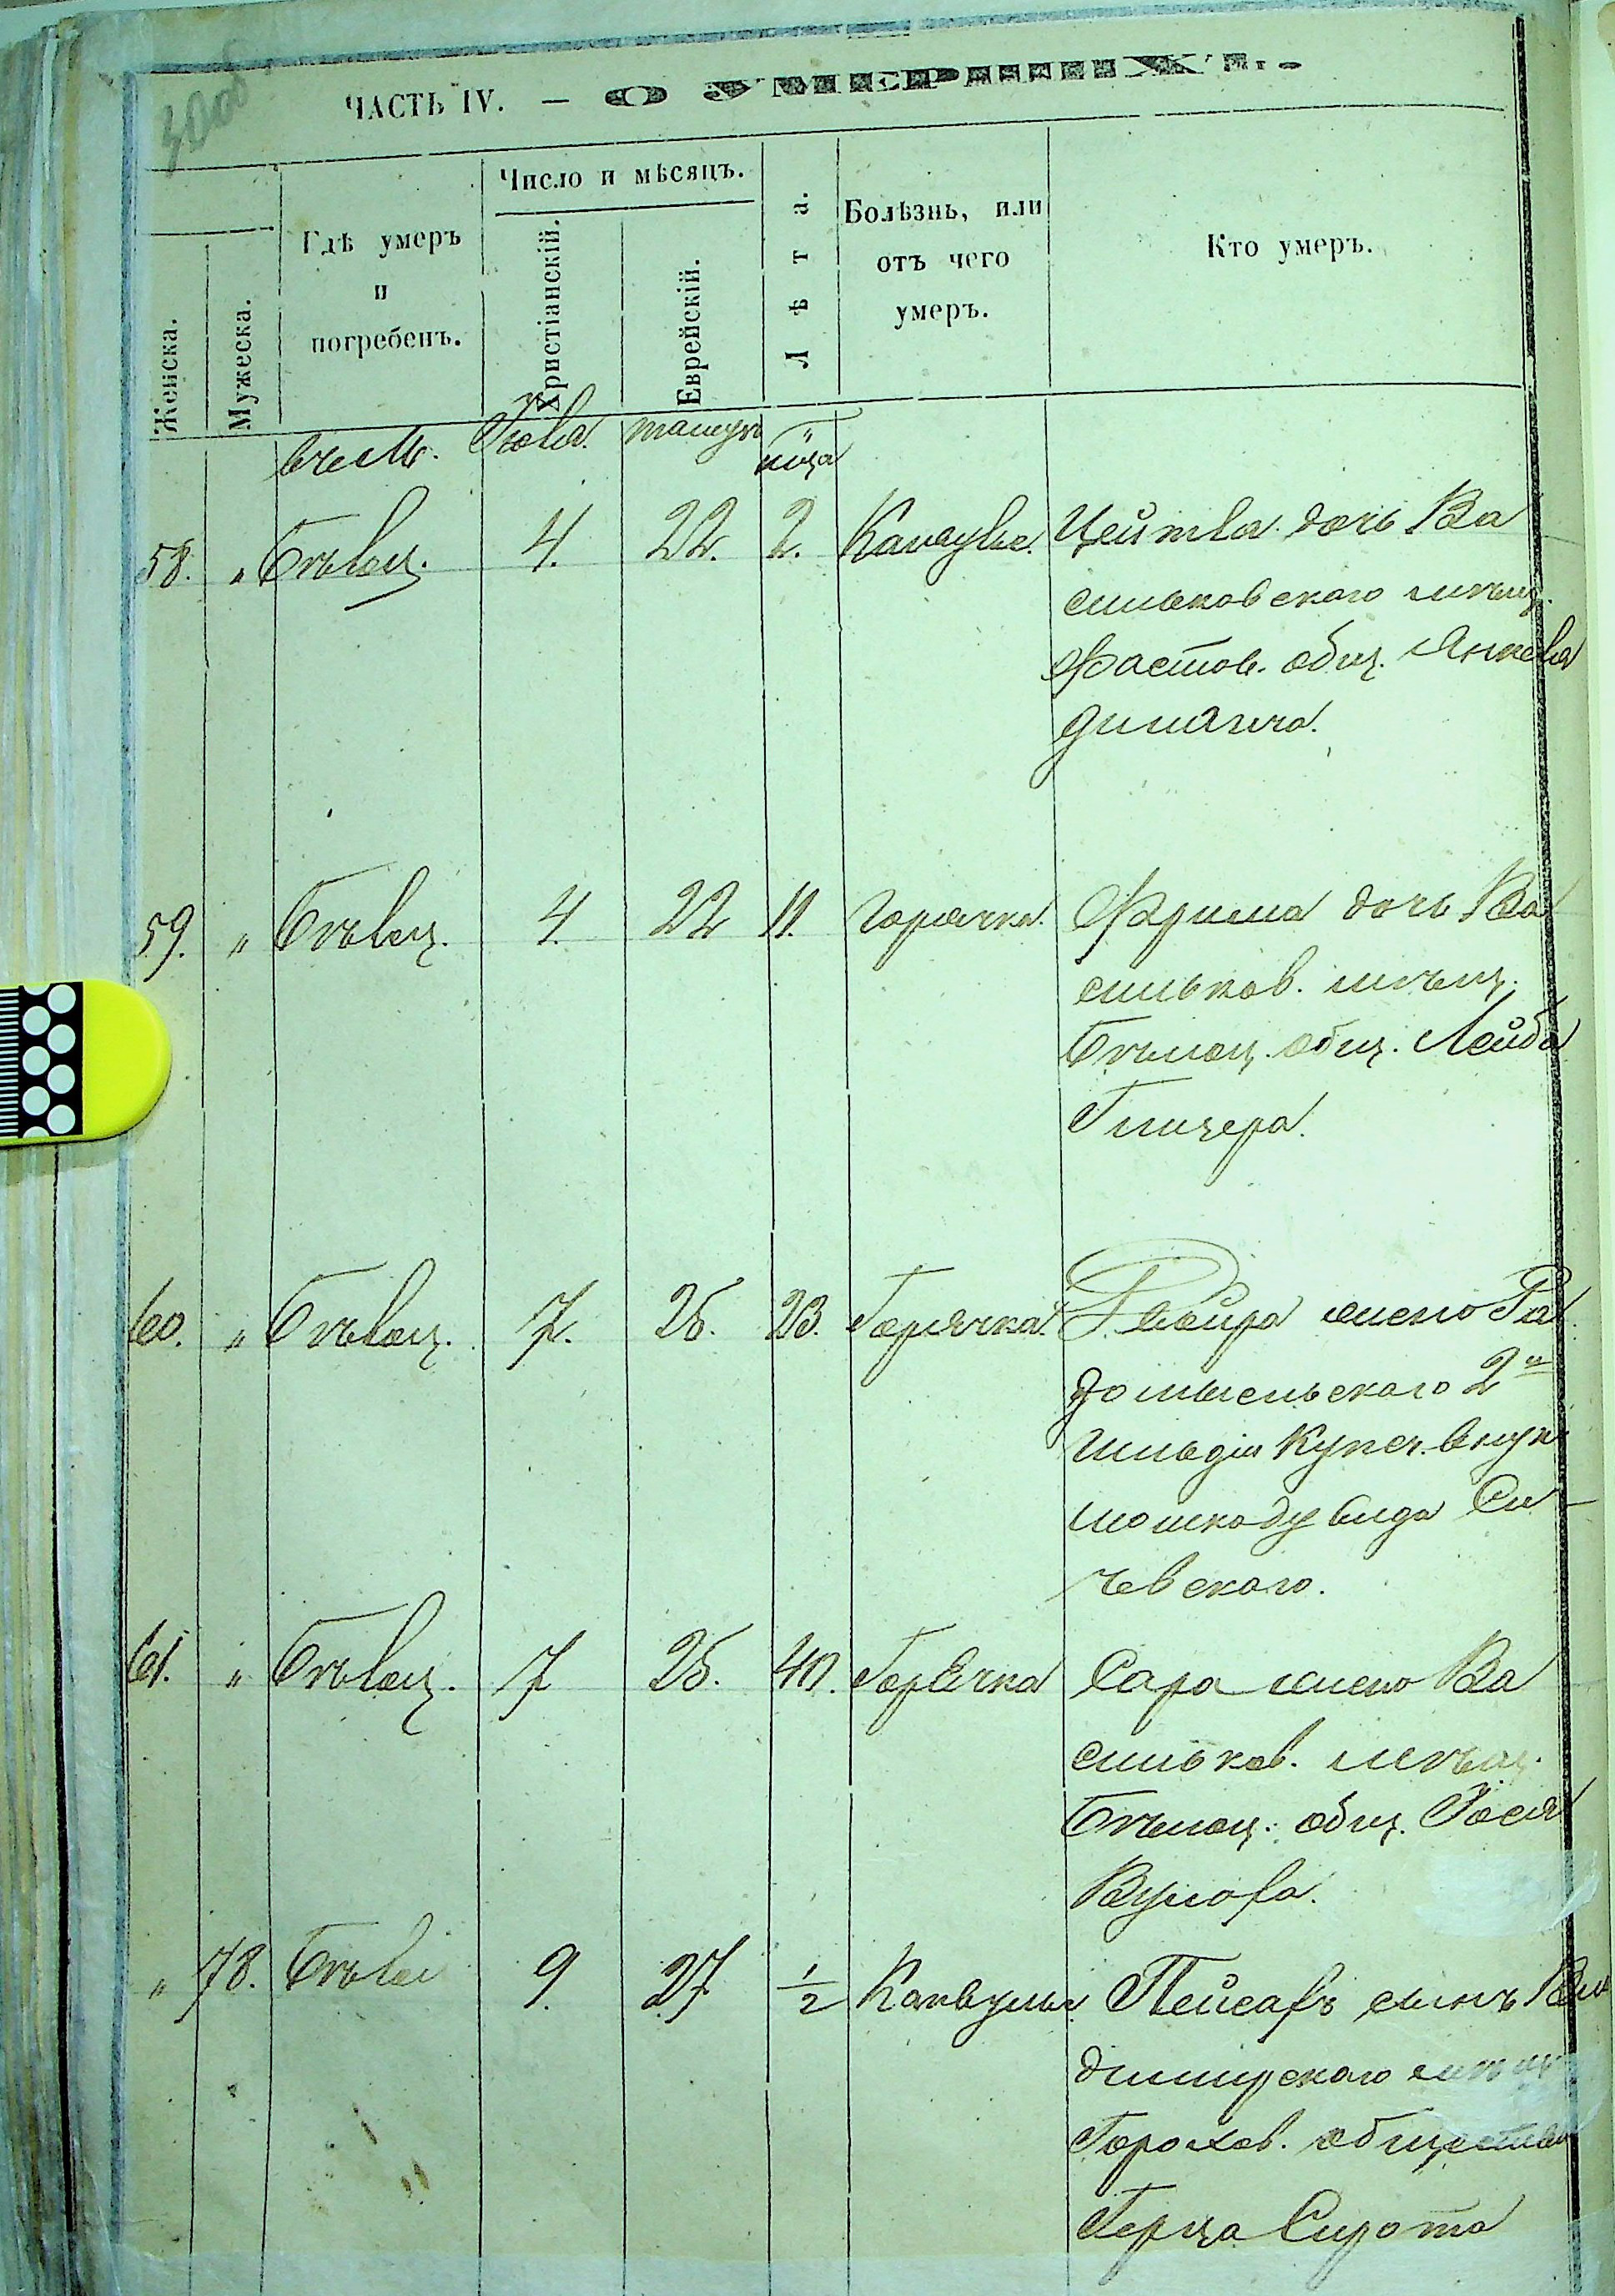 300об
ЧАСТЬ IV. — О УМЕРШИХЪ.
Женска.
Мужеска.
Гдѣ умеръ и погребенъ.
Число и мѣсяцъ.
Христіанскій.
Еврейскій.
Лѣта.
Болѣзнь, или отъ чего умеръ.
Кто умеръ.
въ м. Іюля
58. „ Бѣлоц. 4. 22. 2. Цейтля дочь Ва
сильковскаго мѣщ.
Фастов. общ. Янкеля
59. „ Бѣлоц. 4. 22 11. Горячка. Фрима дочь Ва
сильков. мѣщ.
Бѣлоц. общ. Лейба
Глизера.
60. „ Бѣлоц. 7. 25. 23. Горячка. Двойра жена Ра
домысльскаго 2й
гильдіи купеч. внука
Мошка Дувида Си
чевскаго.
61. „ Бѣлоц. 7 25. 40. Горячка Сара жена Ва
сильков. мѣщ.
Бѣлоц. общ. Іося
„ 78. Бѣлоц 9. 27 1/2 Конвульс. Пейсахъ сынъ Вла
димірскаго мѣщ
Горохов. общества
Герца Сирота